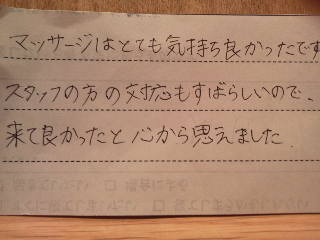 マッサージはとても気持ち良かったです
スタッフの方の対応もすばらしいので、
来て良かったと心から思えました